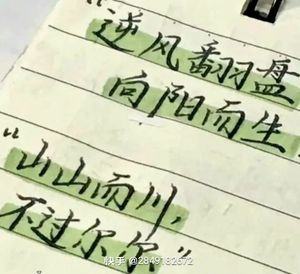 “逆风翻盘
向阳而生
“山山而川，
不过尔尔”
快手 @2849182672